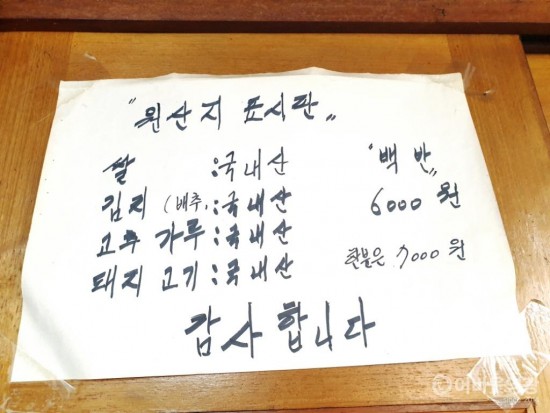 "원산지 표시판"
쌀 : 국내산
김치 (배추) : 국내산
고추 가루 : 국내산
돼지 고기 : 국내산
"백반"
6000 원
한분은 7000 원
감사합니다